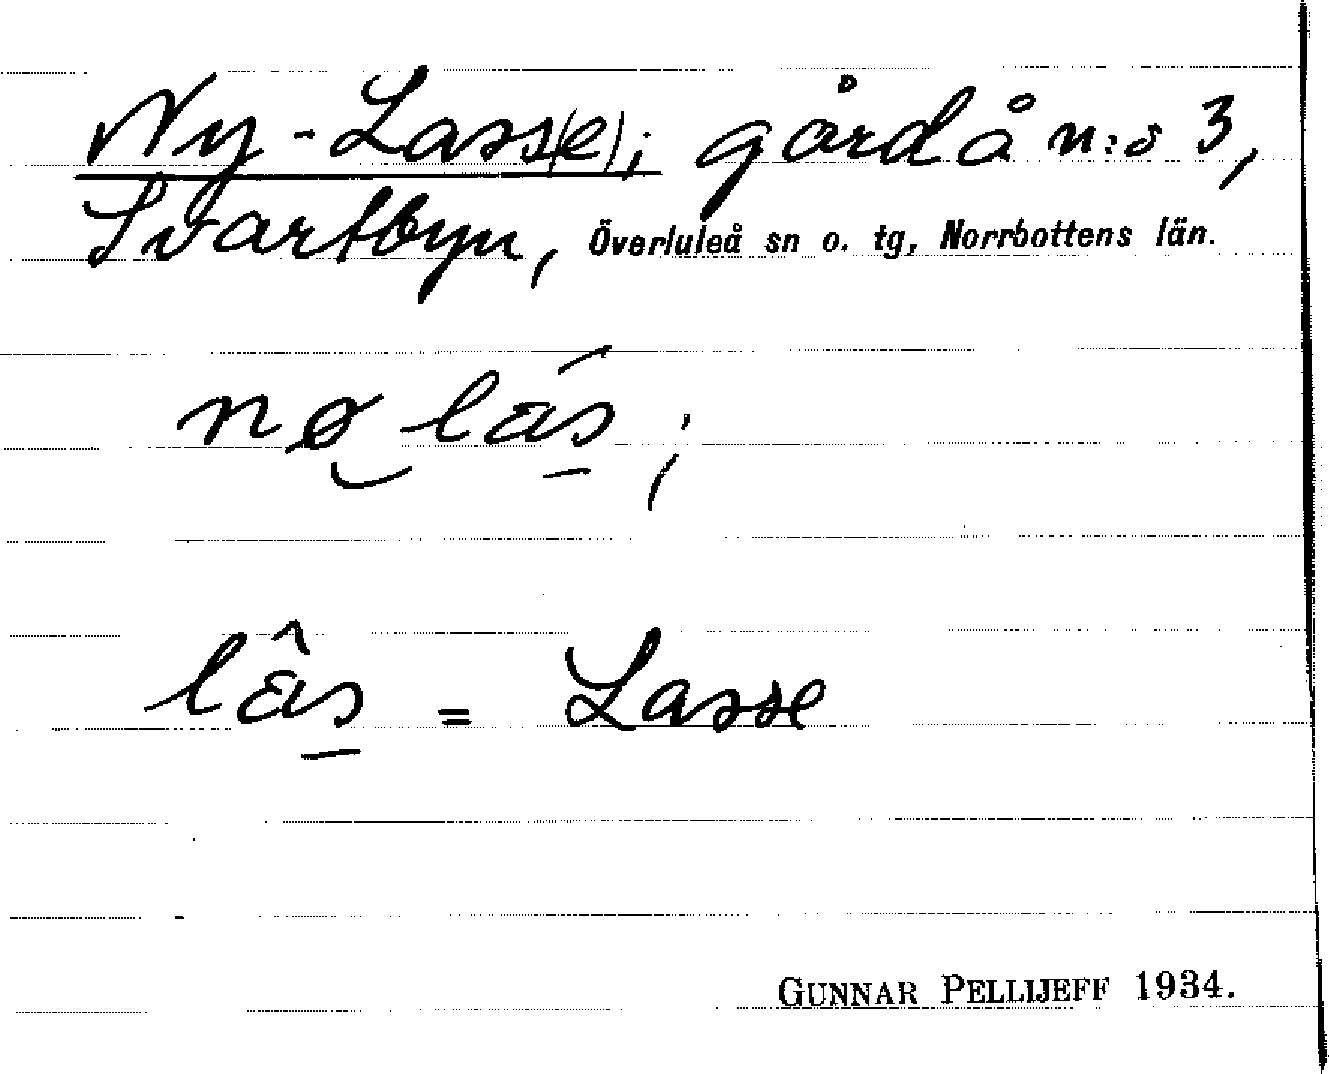 Ny-Lass(e); gård å n:o 3,
Svartbyn, Överluleå sn o. tg, Norrbottens län.
nø lás;
lâs = Lasse
GUNNAR PELLIJEFF 1934.